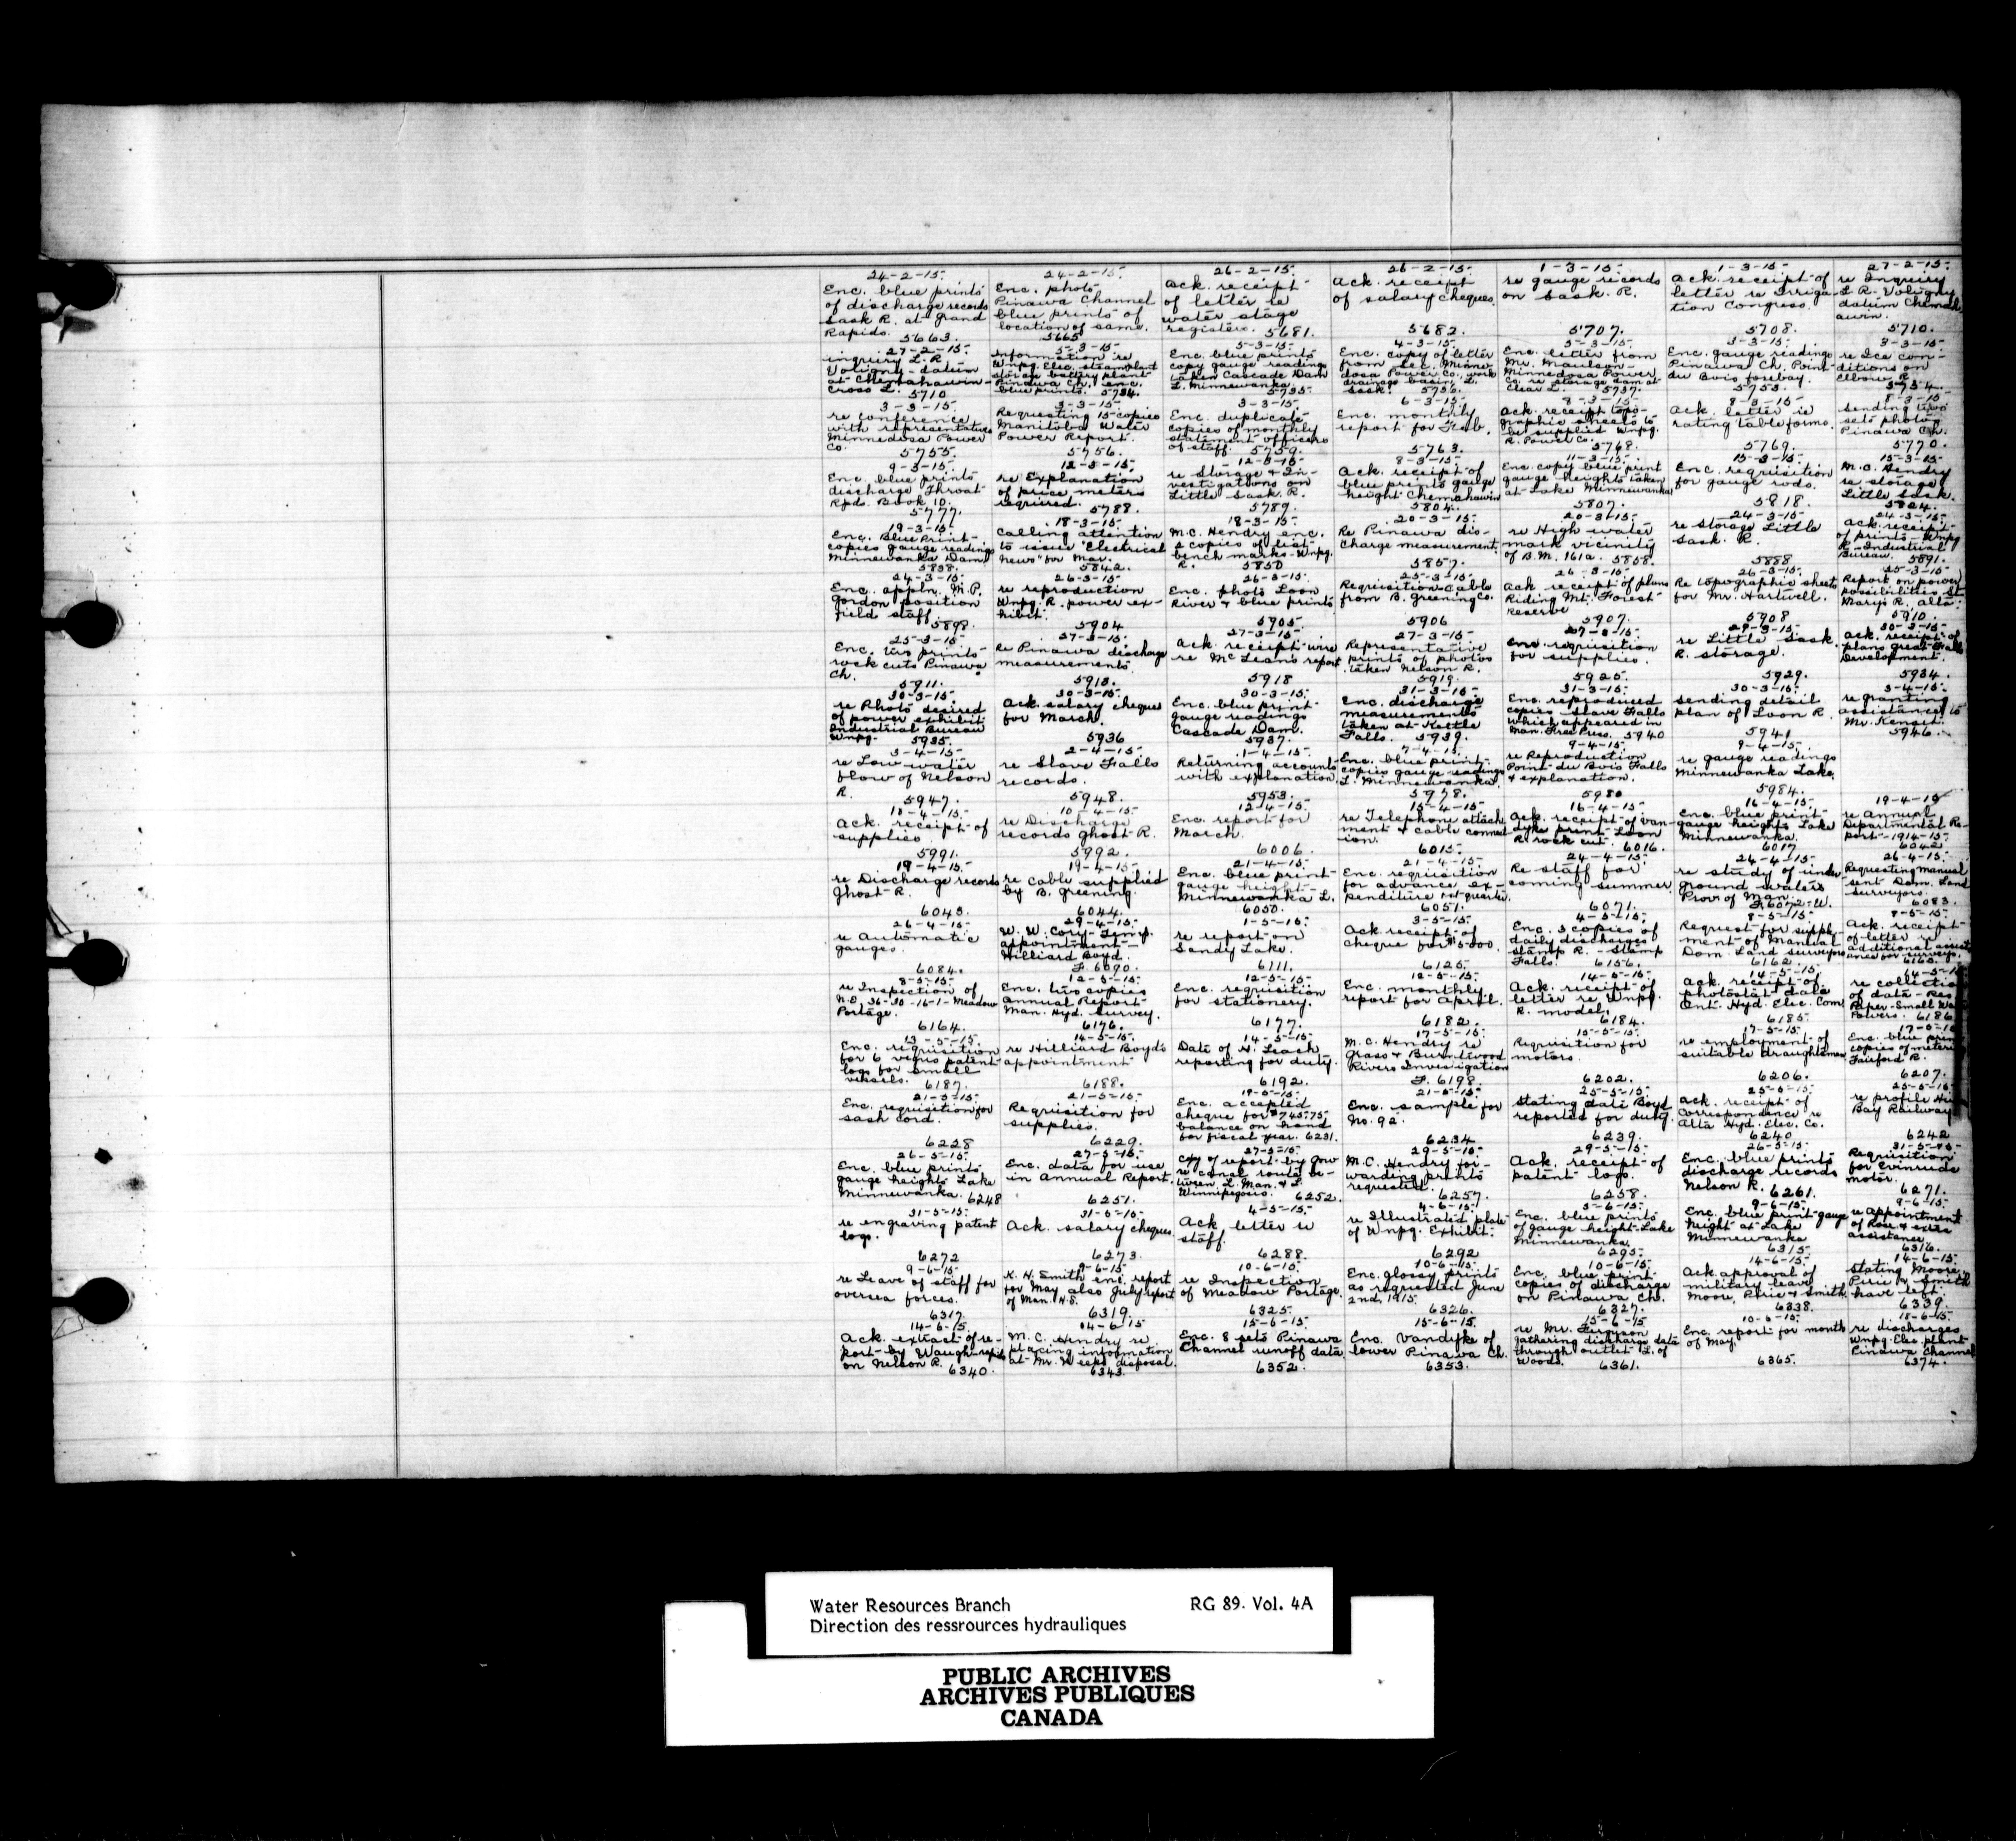 24-2-15.
Enc. blue prints
of discharge records
Sask R. at Grand
Rapids.
5663.
24-2-15.
Enc. photo
Pinawa Channel
blue prints of
location of same.
5665
26-2-15.
Ack. receipt
of letter re
water stage
registers. 5681.
26-2-15.
Ack. receipt
of salary cheques.
5682.
1-3-15.
re gauge records
on Sask. R.
5707.
1-3-15
Ack. receipt of
letter re Irriga
tion Congress.
5708.
27-2-15.
re Inquiry
L. R. Voligny
datum Chemah
awin.
5710.
27-2-15.
inquiry L. R.
Voligny - datum
at Chemahawin -
Cross L. 5710
5-3-15
Information re
Wnpg. Elec. steam plant
storage battery plant
Pinawa Ch. enc.
blue prints. 5734.
5-3-15.
Enc. blue prints
copy gauge readings
taken Cascade Dam
L. Minnewanka.
5735.
4-3-15.
Enc. copy of letter
from Sec. Minne-
dosa Power Co. work
drainage basin L.
Sask. 5736.
5-3-15.
Enc. letter from
Mr. Maulson -
Minnedosa Power
Co. re storage dam at
Clear L. 5737.
3-3-15.
Enc. gauge readings
Pinawa Ch. Point
du Bois forebay.
5753.
3-3-15
re Ice con-
ditions on
Elbow R.
5754.
3-3-15.
re conference
with representatives
Minnedosa Power
Co.
5755.
3-3-15.
Requesting 15 copies
Manitoba Water
Power Report.
5756.
3-3-15.
Enc. duplicate
copies of monthly
statement officers
of staff. 5759.
6-3-15.
Enc. monthly
report for Feb.
5763.
8-3-15.
Ack. receipt topo-
graphic sheets to
be supplied Wnpg.
R. Power Co.
5768.
8-3-15.
Ack. letter re
rating table forms.
5769.
8-3-15
Sending two
sets photos
Pinawa Ch.
5770.
9-3-15.
Enc. blue prints
discharge Throat
Rpds. Book 10.
5777.
12-3-15.
re Explanation
of price meters
required.
5788.
12-3-15
re Storage & In-
vestigations on
Little Sask. R.
5789.
8-3-15.
Ack. receipt of
blue prints gauge
height Chemahawin
5804.
11-3-15.
Enc. copy blue print
gauge heights taken
at Lake Minnewanka
5807.
15-3-15.
Enc. requisition
for gauge rods.
5818.
15-3-15
M.C. Hendry
re storage
Little Sask.
5824.
19-3-15
Enc. Blue Print-
copies gauge readings
Minnewanka Dam
5838.
18-3-15.
Calling attention
to issue "Electrical
News" for Mar.
5842.
18-3-15.
M.C. Hendry enc.
2 copies of list
bench marks - Wnpg.
R. 5850
20-3-15.
Re Pinawa dis-
charge measurement.
5857.
20-3-15.
re High water
mark vicinity
of B.M. 161a. 5858.
24-3-15
re storage Little
Sask. R.
5888
24-3-15
Ack. receipt
of prints - Wnpg
R. Industrial
Bureau. 5891.
24-3-15.
Enc. appln. M. P.
Gordon position
field staff.
5898.
26-3-15.
re reproduction
Wnpg. R. power ex-
hibit.
5904
26-3-15.
Enc. photo Loon
River & blue prints
5905
25-3-15.
Requisition cable
from B. Greening Co.
5906
26-3-15.
Ack receipt of plans
Riding Mt. Forest
Reserve
5907.
26-3-15.
Re topographic sheets
for Mr. Hartwell.
5908
25-3-15.
Report on power
possibilities St.
Mary's R., Alta.
5910.
25-3-15
Enc. two prints
rock cuts Pinawa
Ch.
5911.
27-3-15.
Re Pinawa discharge
measurements.
5913.
27-3-15.
Ack. receipt wire
re McLean's report
5918
27-3-15.
Representative
prints of photos
taken Nelson R.
5919.
27-3-15.
Enc. requisition
for supplies.
5925.
29-3-15.
re Little Sask.
R. storage.
5929.
30-3-15.
Ack. receipt of
plans Great Falls
Development.
5934.
30-3-15.
re Photo desired
of power exhibit
Industrial Bureau
Wnpg. 5935.
30-3-15.
Ack. salary cheques
for March.
5936
30-3-15.
Enc. blue print
gauge readings
Cascade Dam.
5937.
31-3-15.
Enc. discharge
measurements
taken at Kettle
Falls. 5939.
31-3-15.
Enc. reproduced
copies - Slave Falls
which appeared in
Man. Free Press. 5940
30-3-15.
sending detail
plan of Loon R.
5941
3-4-15.
re granting
assistance to
Mr. Kensit.
5946.
3-4-15.
re Low water
flow of Nelson
R.
5947.
2-4-15
re Slave Falls
records.
5948.
1-4-15.
Returning accounts
with explanation.
5953.
7-4-15.
Enc. blue print
copies gauge readings
L. Minnewanka.
5978.
9-4-15.
re Reproduction
Point du Bois Falls
& explanation.
5980
9-4-15.
re gauge readings
Minnewanka Lake.
5984.
10-4-15.
Ack. receipt of
supplies
5991.
10-4-15.
re Discharge
records Ghost R.
5992.
12-4-15.
Enc. report for
March.
6006.
15-4-15.
re Telephone attach
ment & cable connect
ion.
6015.
16-4-15.
Ack. receipt of van-
dyke print Loon
R. rock cut. 6016.
16-4-15.
Enc. blue print
gauge heights Lake
Minnewanka.
6017
19-4-15
re Annual
Departmental Re-
port 1914-15.
6042
19-4-15.
re Discharge records
Ghost R.
6043.
19-4-15.
re cable supplied
by B. Greening.
6044.
21-4-15.
Enc. blue print
gauge height
Minnewanka L.
6050.
21-4-15.
Enc. requisition
for advance ex-
penditure 1st quarter.
6051.
24-4-15.
Re staff for
coming summer
6071.
24-4-15.
re study of under-
ground waters
Prov of Man.
F. 6072-W.
26-4-15.
Requesting manual
sent Dom. Land
surveyors.
6083.
26-4-15.
re Automatic
gauges.
6084.
29-4-15.
W. W. Cory - Temp.
appointment
Hilliard Boyd.
F. 6090.
1-5-15.
re report on
Sandy Lake.
6111.
3-5-15.
Ack receipt of
cheque for $5000.
6125.
4-5-15.
Enc. 3 copies of
daily discharges
Stamp R. - Stamp
Falls. 6156.
8-5-15
Request for supply-
ment of Manual
Dom. Land surveyors
6162.
8-5-15.
Ack. receipt
of letter re
additional assist
ance for surveys.
6163.
8-5-15.
re Inspection of
N.E. 36-30-16-1-Meadow
Portage.
6164.
12-5-15.
Enc. two copies
Annual Report
Man. Hyd. Survey.
6176.
12-5-15.
Enc. requisition
for stationery.
6177.
12-5-15.
Enc. monthly
report for April.
6182.
14-5-15.
Ack. receipt of
letter re Wnpg.
R. model.
6184.
14-5-15.
Ack. receipt of
photostat data
Ont. Hyd. Elec. Com.
6185.
14-5-15
re collection
of data - Res.
Paper - Small Wa
Powers. 6186
13-5-15.
Enc. requisition
for 6 patent
logs for small
vessels. 6187.
14-5-15.
re Hilliard Boyd's
appointment
6188.
14-5-15.
Date of H. Leach
reporting for duty.
6192.
17-5-15.
M. C. Hendry re
Grass & Burntwood
Rivers Investigation
F. 6198.
15-5-15.
Requisition for
motors.
6202.
17-5-15.
re employment of
suitable draughtsman
6206.
17-5-15
Enc. blue print
copies of metering
Fairford R.
6207.
21-5-15.
Enc. requisition for
sash cord.
6228
21-5-15.
Requisition for
supplies.
6229.
19-5-15.
Enc. accepted
cheque for $745.75
balance on hand
for fiscal year. 6231.
21-5-15.
Enc. sample for
No. 92.
6234
25-5-15.
Stating date Boyd
reported for duty.
6239.
25-5-15.
Ack. receipt of
Correspondence re
Alta Hyd. Elec. Co.
6240
25-5-15
re profile
Bay Railway
6242
26-5-15.
Enc. blue prints
gauge heights Lake
Minnewanka. 6248
27-5-15.
Enc. data for use
in Annual Report.
6251.
27-5-15.
Copy of report by Gow
re canal route be-
tween L. Man. & L.
Winnipegosis. 6252.
29-5-15
M.C. Hendry for-
warding prints
requested.
6257.
29-5-15.
Ack. receipt of
patent logs.
6258.
26-5-15.
Enc. blue prints
discharge records
Nelson R. 6261.
31-5-15
Requisition
for Evinrude
motor.
6271.
31-5-15.
re engraving patent
logs.
6272
31-5-15.
Ack. salary cheques.
6273.
4-5-15.
Ack. letter re
staff.
6288.
4-6-15.
re Illustrated plate
of Wnpg. Exhibit.
6292
5-6-15.
Enc. blue prints
of gauge height Lake
Minnewanka
6295.
9-6-15.
Enc. blue print gauge
height at Lake
Minnewanka
6315.
9-6-15.
re appointment
of Rose & extra
assistance.
6316.
9-6-15
re Leave of staff for
oversea forces.
6317.
9-6-15
K. H. Smith enc. report
for May also July report
of Man. H.S.
6319.
10-6-15.
re Inspection
of Meadow Portage.
6325.
10-6-15.
Enc. glossy prints
as requested June
2nd, 1915.
6326.
10-6-15.
Enc. blue print
copies of discharge
on Pinawa Ch.
6327.
14-6-15.
Ack. approval of
military leave
Moore, Pirie & Smith.
6338.
14-6-15.
Stating Moore
Pirie & Smith
have left.
6339.
14-6-15.
Ack. extract of re-
port by Waugh - rapids
on Nelson R.
6340.
14-6-15
M. C. Hendry re
placing information
at Mr. disposal.
6343.
15-6-15.
Enc. 8 sets Pinawa
Channel runoff data.
6352.
15-6-15.
Enc. Vandyke of
lower Pinawa Ch.
6353.
15-6-15
re Mr. Ferguson
gathering discharge data
through outlet L. of
Woods. 6361.
10-6-15.
Enc. report for month
of May.
6365.
15-6-15.
re discharges
Wnpg. Elec. plant
Pinawa Channel
6374.
Water Resources Branch RG 89. Vol. 4A
Direction des ressrources hydrauliques
PUBLIC ARCHIVES
ARCHIVES PUBLIQUES
CANADA